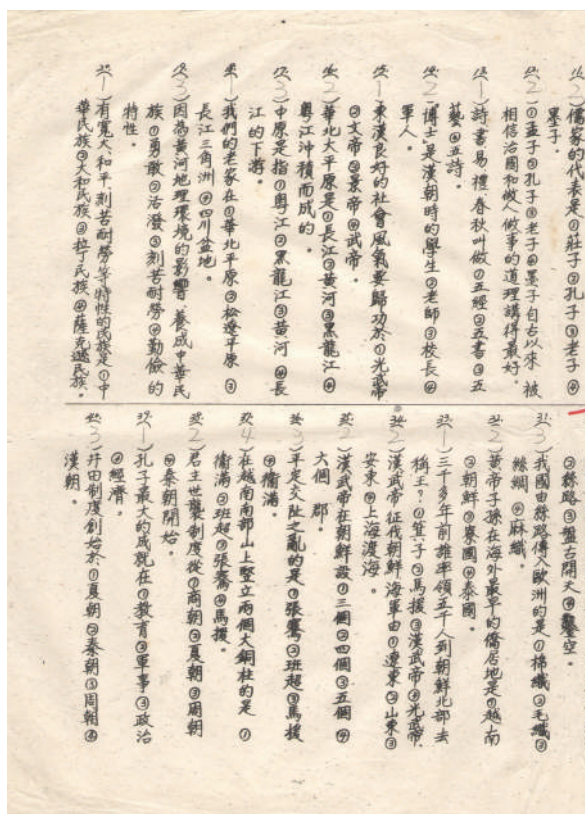 11.(2)儒家的代表是①莊子②孔子③老子④
墨子。
12.(2)①孟子②孔子③老子④墨子自古以來 被
相信治國和做人做事的道理講得最好。
13.(1)詩 書 易 禮 春秋叫做①五經②五書③五
藝④五詩。
14.(2)博士是漢朝時的①學生②老師③校長④
軍人。
15.(1)東漢良好的社會風氣要歸功於①光武帝
②文帝③景帝④武帝。
16.(2)華北大平原是①長江②黃河③黑龍江④
粵江沖積而成的。
17.(3)中原是指①粵江②黑龍江③黃河④長
江的下游。
18.(1)我們的老家在①華北平原②松遼平原③
長江三角洲④四川盆地。
19.(3)因為黃河地理環境的影響 養成中華民
族①勇敢②活潑③刻苦耐勞④勤儉的
特性。
20.(1)有寬大、和平、刻苦耐勞等特性的民族是①中
華民族②大和民族③拉丁民族④薩克遜民族。
②絲路③盤古開天④鑿空。
31.(3)我國由絲路傳入歐洲的是①棉織②毛織③
絲綢④麻織。
32.(2)黃帝子孫在海外最早的僑居地是①越南
②朝鮮③寮國④泰國。
33.(1)三千多年前誰率領五千人到朝鮮北部去
稱王?①箕子②馬援③漢武帝④光武帝。
34.(2)漢武帝征伐朝鮮海軍由①遼東②山東③
安東④上海渡海。
35.(2)漢武帝在朝鮮設①三個②四個③五個④
六個 郡。
36.(3)平定交阯之亂的是①張騫②班超③馬援
④衛滿。
37.(4)在越南南部山上豎立兩個大銅柱的是①
衛滿②班超③張騫④馬援。
38.(2)君主世襲制度從①商朝②夏朝③周朝
④秦朝開始。
39.(1)孔子最大的成就在①教育②軍事③政治
④經濟。
40.(3)井田制度創始於①夏朝②秦朝③周朝④
漢朝。